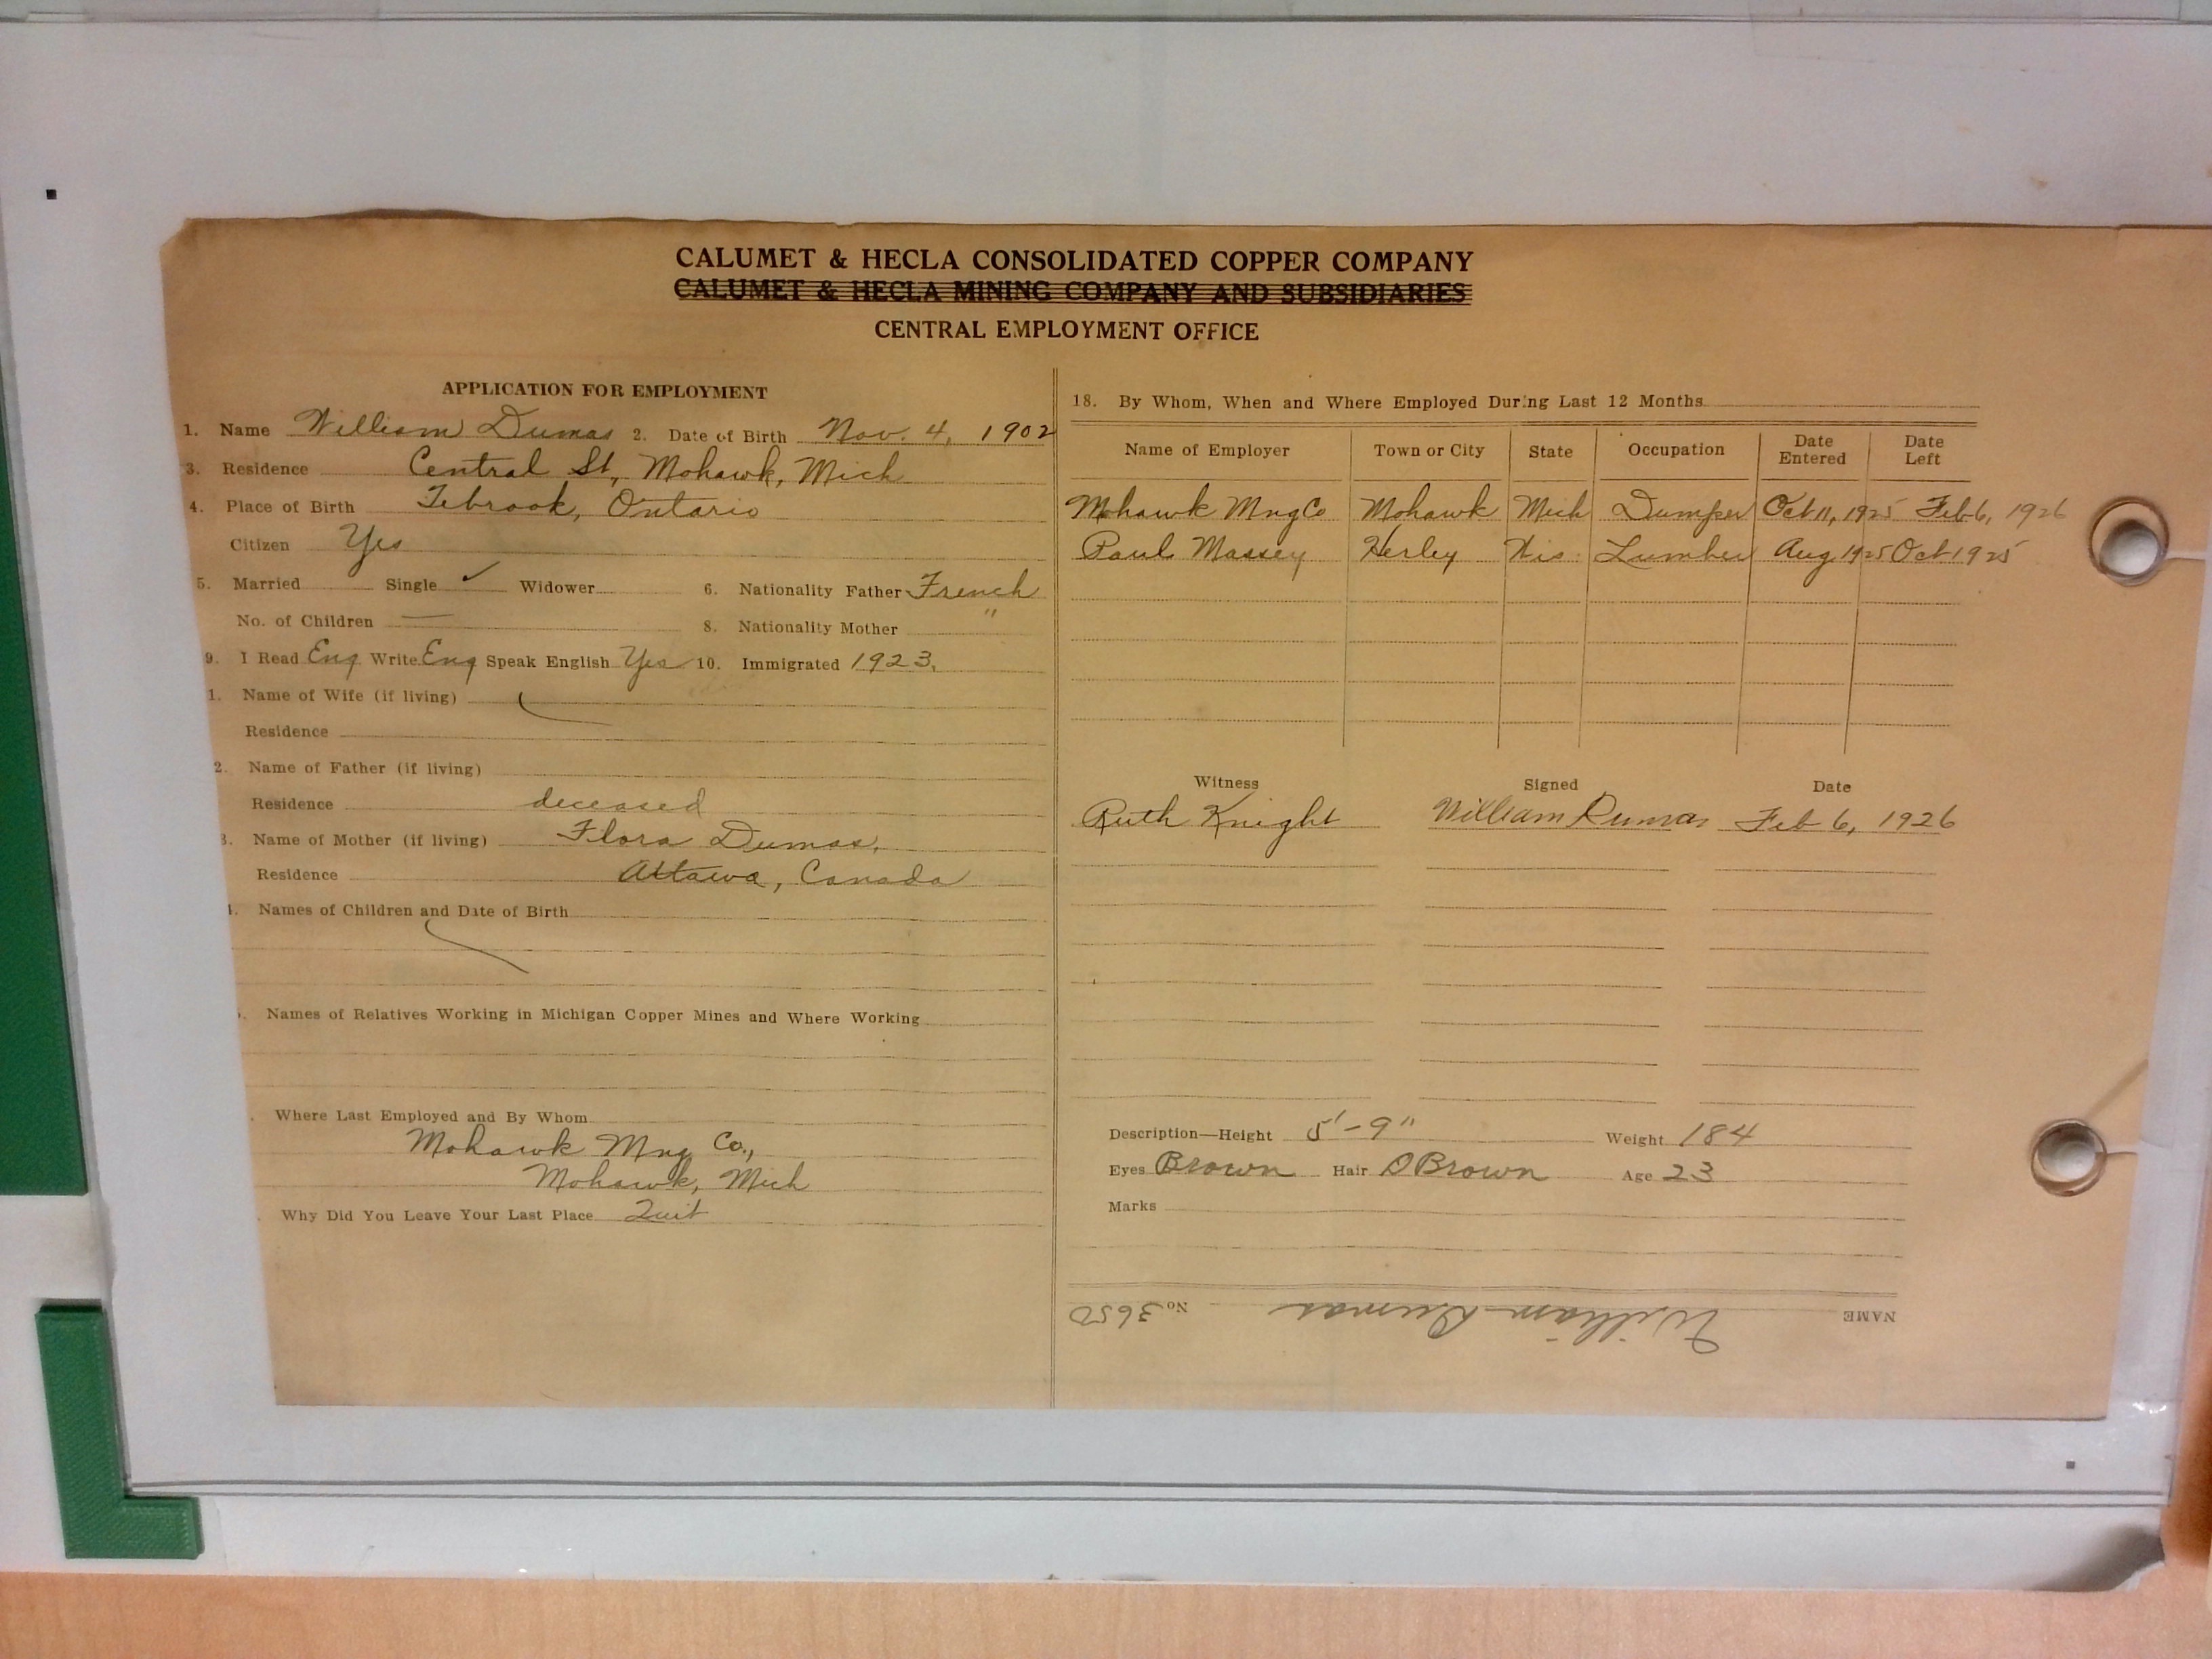 CALUMET & HECLA CONSOLIDATED COPPER COMPANY
CALUMET & HECLA MINING COMPANY AND SUBSIDIARIES
CENTRAL EMPLOYMENT OFFICE
APPLICATION FOR EMPLOYMENT
1. Name William Dumas 2. Date of Birth Nov. 4, 1902
3. Residence Central St, Mohawk, Mich
4. Place of Birth Tebrook, Ontario
Citizen Yes
5. Married Single ✓ Widower 6. Nationality Father French
No. of Children — 8. Nationality Mother "
9. I Read Eng Write Eng Speak English Yes 10. Immigrated 1923.
1. Name of Wife (if living)
Residence
2. Name of Father (if living)
Residence deceased
3. Name of Mother (if living) Flora Dumas,
Residence Attawa, Canada
Names of Children and Date of Birth
Names of Relatives Working in Michigan Copper Mines and Where Working
Where Last Employed and By Whom
Mohawk Mng Co.,
Mohawk, Mich
Why Did You Leave Your Last Place Quit
18. By Whom, When and Where Employed During Last 12 Months
Name of Employer Town or City State Occupation Date Entered Date Left
Mohawk Mng Co Mohawk Mich Dumper Oct 11, 1925 Feb 6, 1926
Paul Massey Herley Wis Lumber Aug 1925 Oct 1925
Witness Signed Date
Ruth Knight William Dumas Feb 6, 1926
Description—Height 5'-9" Weight 184
Eyes Brown Hair D Brown Age 23
Marks
NAME William Dumas No 3650